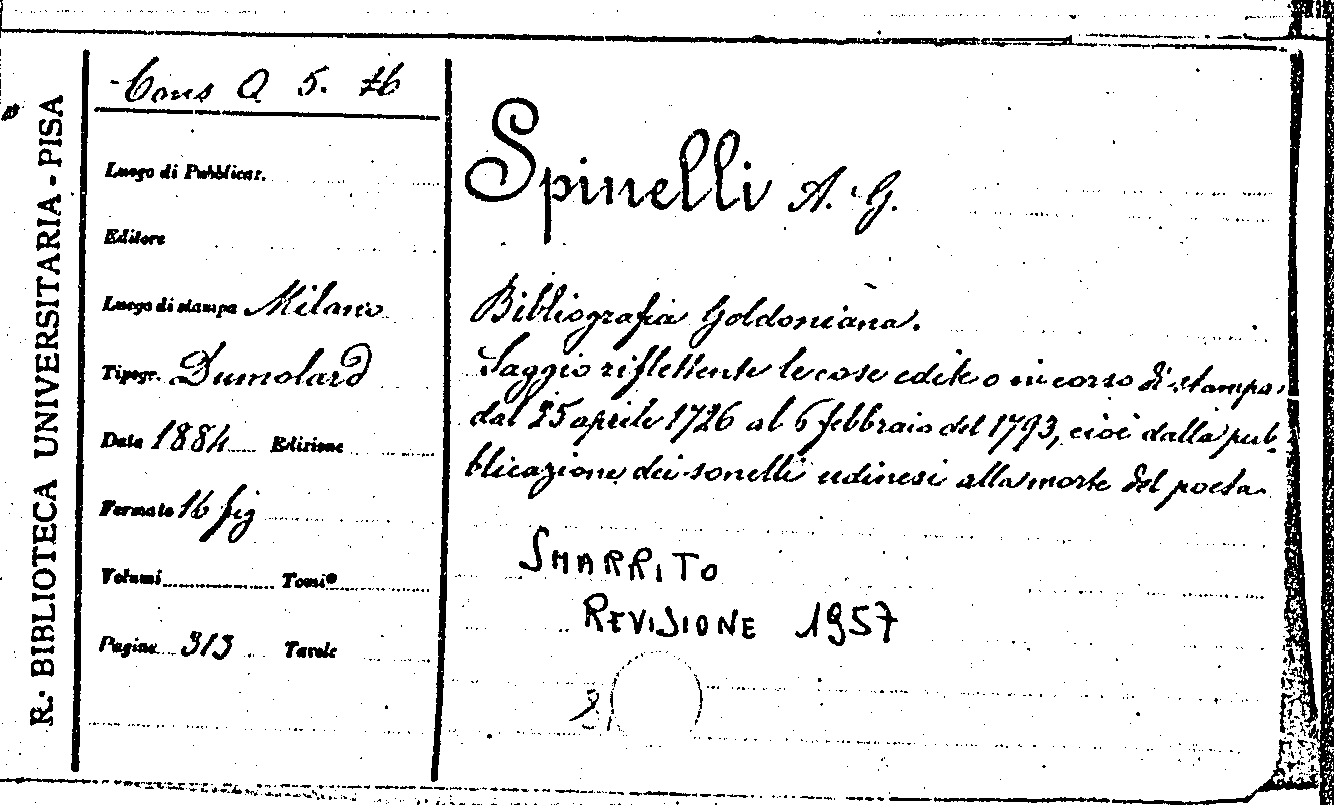 R. BIBLIOTECA UNIVERSITARIA - PISA
Cons Q 5. 26
Luogo di Pubblicaz.
Editore
Luogo di stampa Milano
Tipogr. Dumolard
Data 1884 Edizione
Formato 16 fig
Volumi Tomi
Pagine 313 Tavole
Spinelli A. G.
Bibliografia Goldoniana.
Saggio riflettente le cose edite o in corso di stampa
dal 25 aprile 1726 al 6 febbraio del 1793, cioè dalla pub-
blicazione dei sonetti udinesi alla morte del poeta
SMARRITO
REVISIONE 1957